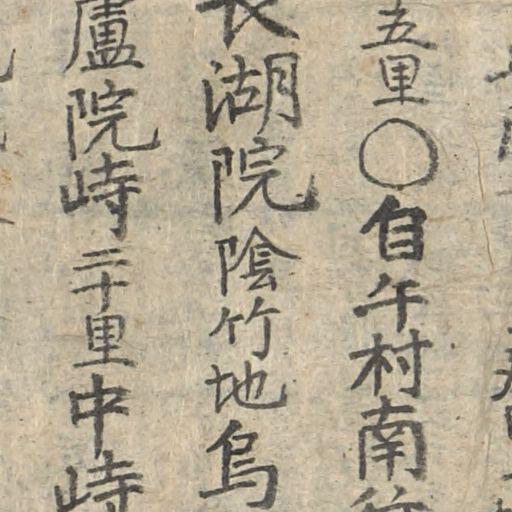 五里○自午村南
長湖院陰竹地烏
盧院峙二十里中峙